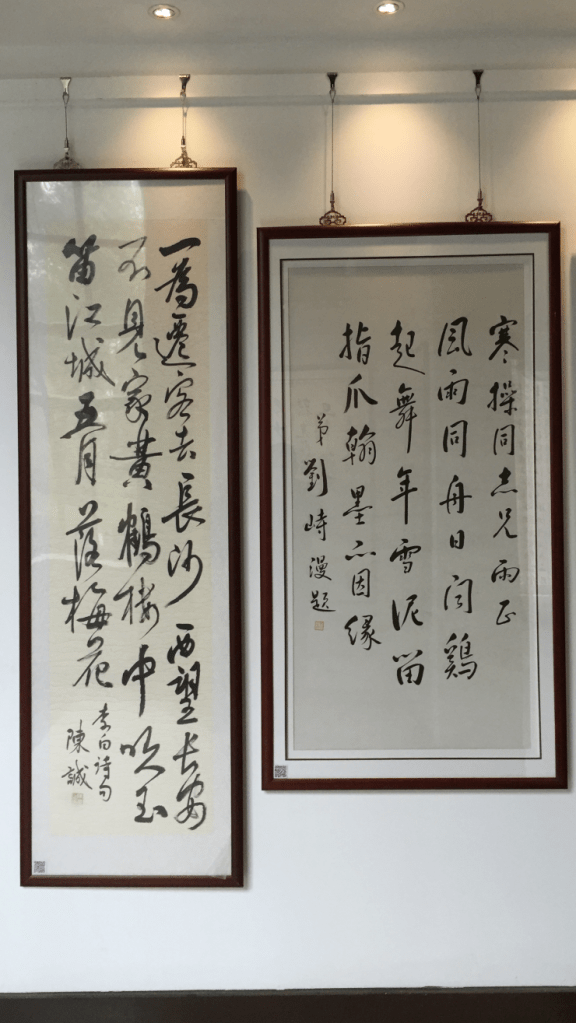 寒操同志兄兩正
風雨同舟日聞鷄
起舞年雪泥留
指爪翰墨亦因緣
弟劉峙漫題
一為遷客去長沙西望長安
不見家黃鶴樓中吹玉
笛江城五月落梅花
李白詩句
陳誠